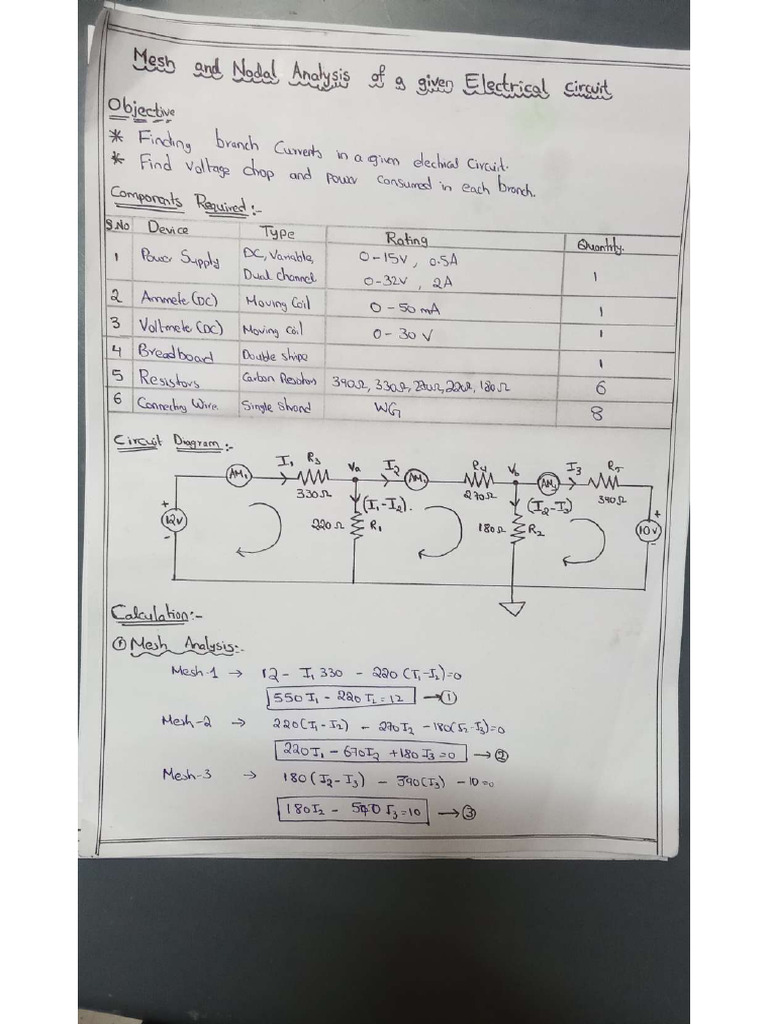 Mesh and Nodal Analysis of a given Electrical circuit
Objective
* Finding branch Currents in a given electrical Circuit.
* Find Voltage drop and power consumed in each branch.
Components Required:-
S.No Device Type Rating Quantity.
1 Power Supply DC, Variable, Dual channel 0-15V, 0.5A 0-32V, 2A 1
2 Ammete (DC) Moving Coil 0-50 mA 1
3 Voltmete (DC) Moving Coil 0-30 V 1
4 Breadboard Double stripe 1
5 Resistors Carbon 390Ω, 330Ω, 270Ω, 220Ω, 180Ω 6
6 Connecting Wire Single Strand WG 8
Circuit Diagram:-
AM₁ I₁ R₃ Va I₂ AM₂ R₄ Vb AM₃ I₃ R₅
330Ω 270Ω 390Ω
(I₁-I₂). (I₂-I₃)
+ 12V - 220Ω R₁ 180Ω R₂ + 10V -
Calculation:-
① Mesh Analysis:-
Mesh-1 → 12 - I₁ 330 - 220 (I₁-I₂)=0
550 I₁ - 220 I₂ = 12 → ①
Mesh-2 → 220(I₁-I₂) - 270I₂ - 180(I₂-I₃)=0
220I₁ - 670I₂ +180I₃=0 → ②
Mesh-3 → 180(I₂-I₃) - 390(I₃) - 10=0
180I₂ - I₃=10 → ③